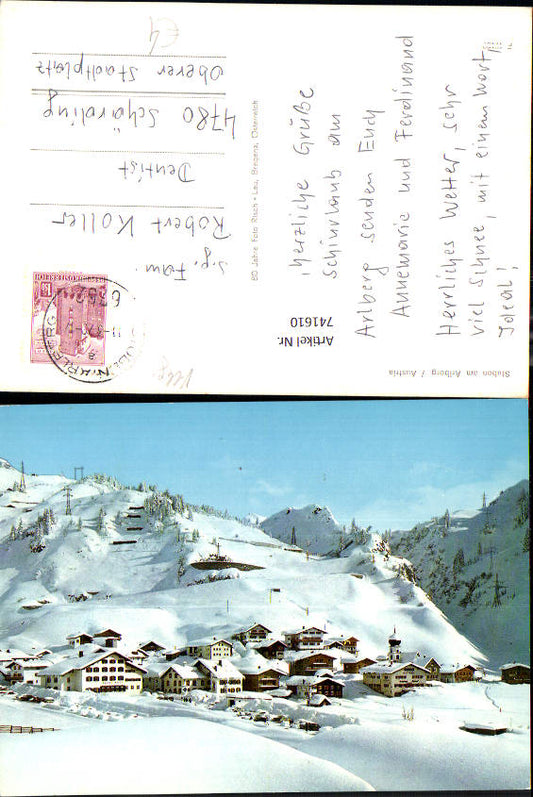 Stuben am Arlberg / Austria
Herzliche Grüße
Schiurlaub am
Arlberg senden Euch
Annemarie und Ferdinand
Herrliches Wetter, sehr
viel Schnee, mit einem Wort,
Ideal!
80 Jahre Foto Risch-Lau, Bregenz, Österreich
s.g. Fam.
Robert Koller
Dentist
4780 Schärding
Oberer Stadtplatz
€4
REPUBLIK ÖSTERREICH
Artikel Nr.
741610